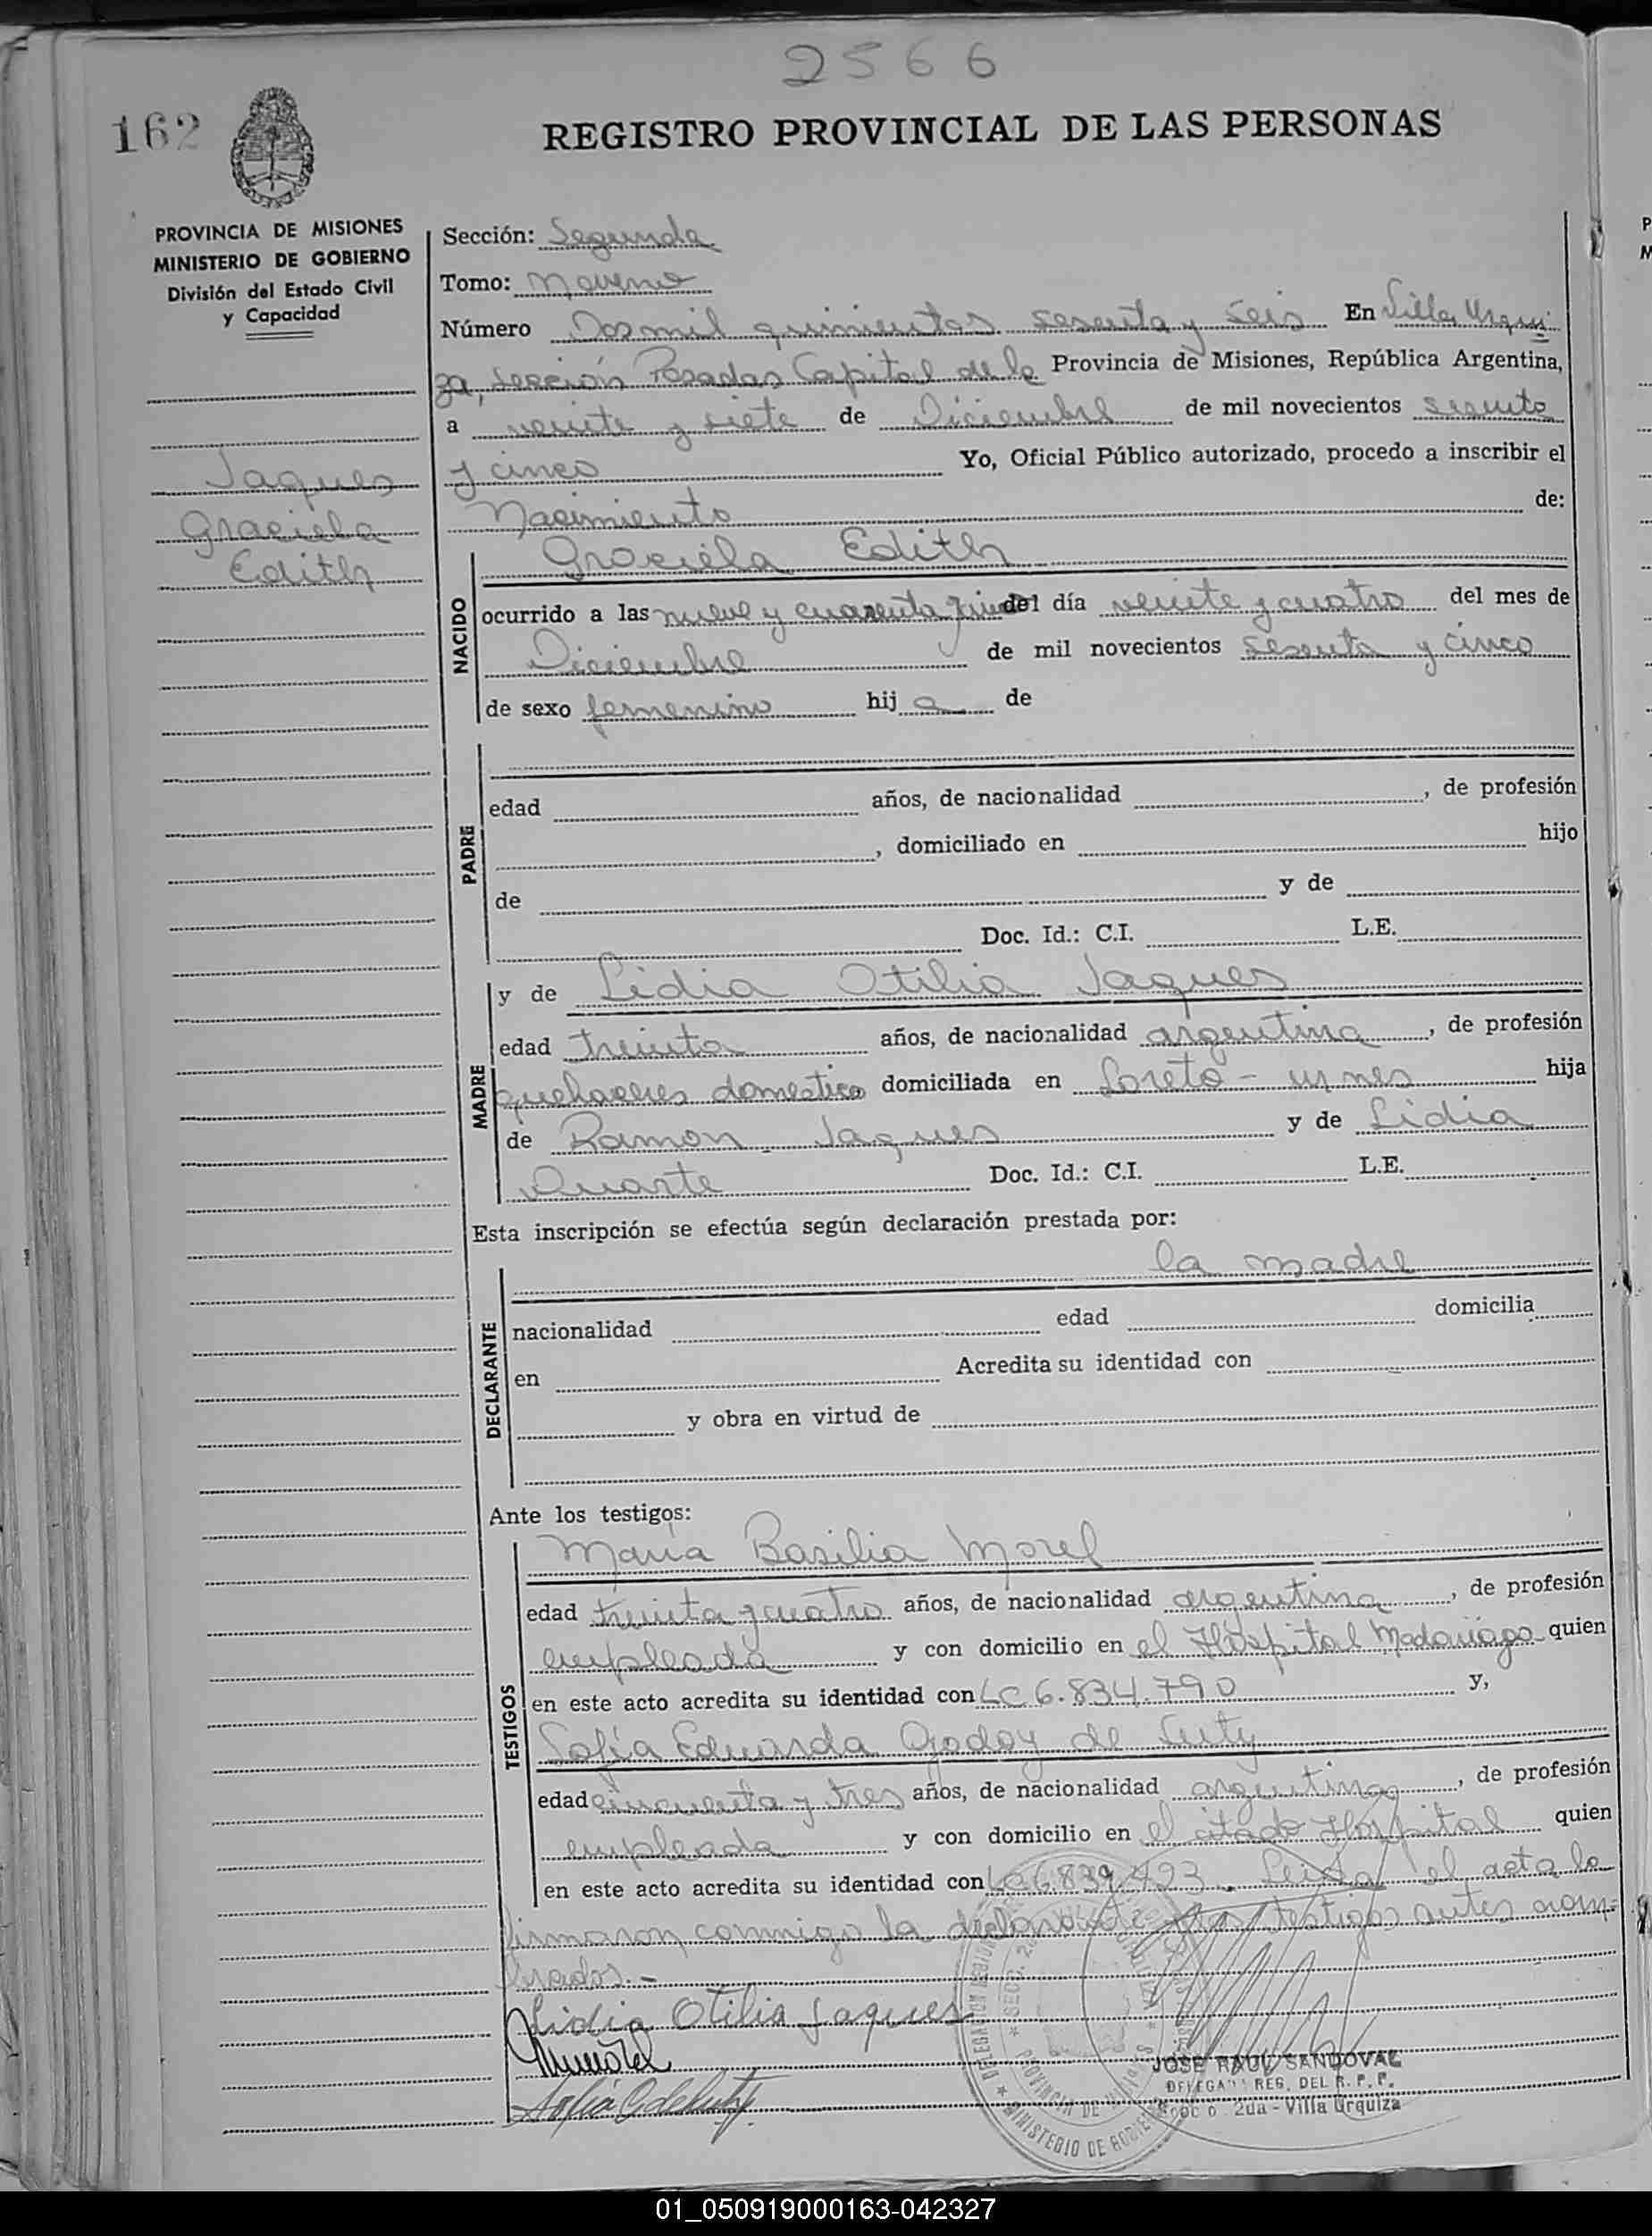 2566
162
REGISTRO PROVINCIAL DE LAS PERSONAS
PROVINCIA DE MISIONES
MINISTERIO DE GOBIERNO
División del Estado Civil
y Capacidad
Jaques
Graciela
Edith
Sección: Segunda
Tomo: Noveno
Número Dos mil quinientos sesenta y seis En Villa Urqui
za, Sección Posadas Capital de la Provincia de Misiones, República Argentina,
a veinte y siete de Diciembre de mil novecientos sesenta
y cinco Yo, Oficial Público autorizado, procedo a inscribir el
Nacimiento de:
NACIDO
Graciela Edith
ocurrido a las nueve y cuarenta del día veinte y cuatro del mes de
Diciembre de mil novecientos sesenta y cinco
de sexo femenino hij a de
PADRE
edad años, de nacionalidad , de profesión
, domiciliado en hijo
de y de
Doc. Id.: C.I. L.E.
MADRE
y de Lidia Otilia Jaques
edad treinta años, de nacionalidad argentina , de profesión
quehaceres domestico domiciliada en Loreto - hija
de Ramon Jaques y de Lidia
Duarte Doc. Id.: C.I. L.E.
Esta inscripción se efectúa según declaración prestada por:
DECLARANTE
la madre
nacionalidad edad domicilia
en Acredita su identidad con
y obra en virtud de
Ante los testigos:
TESTIGOS
Maria Basilia Morel
edad treinta y cuatro años, de nacionalidad argentina , de profesión
empleada y con domicilio en el Hospital Madariaga quien
en este acto acredita su identidad con LC 6.834.790 y,
Sofía Eduarda Godoy de
edad cincuenta y tres años, de nacionalidad argentina , de profesión
empleada y con domicilio en el citado Hospital quien
en este acto acredita su identidad con LC 6.839.493. Leida el acta la
firmaron conmigo la declarante y los testigos antes nom-
brados.-
Lidia Otilia Jaques
JOSE RAUL SANDOVAL
DELEGADO REG. DEL R. P. P.
2da - Villa Urquiza
01_050919000163-042327